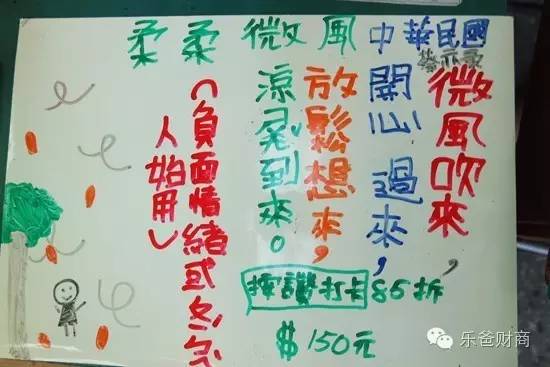 柔柔微風
中華民國
微風吹來,
開心過來,
放鬆想來,
涼到來。
(負面情緒冬
人始用)
按讚打卡85折
$150元
乐爸财商